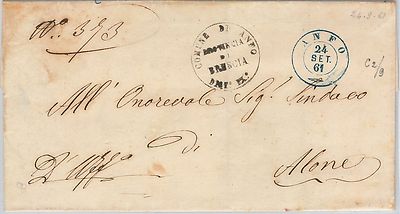 24-9-61
N.º 373
COMUNE DI ANFO
PROVINCIA
DI
BRESCIA
ANFO
24
SET.
61
C2/9
All' Onorevole Sig.r Sindaco
D'Uff.o di
Alone